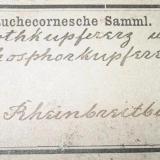 Zuchecornesche Samml.
Rothkupfererz u
Phosphorkupfererz
Rheinbreitba